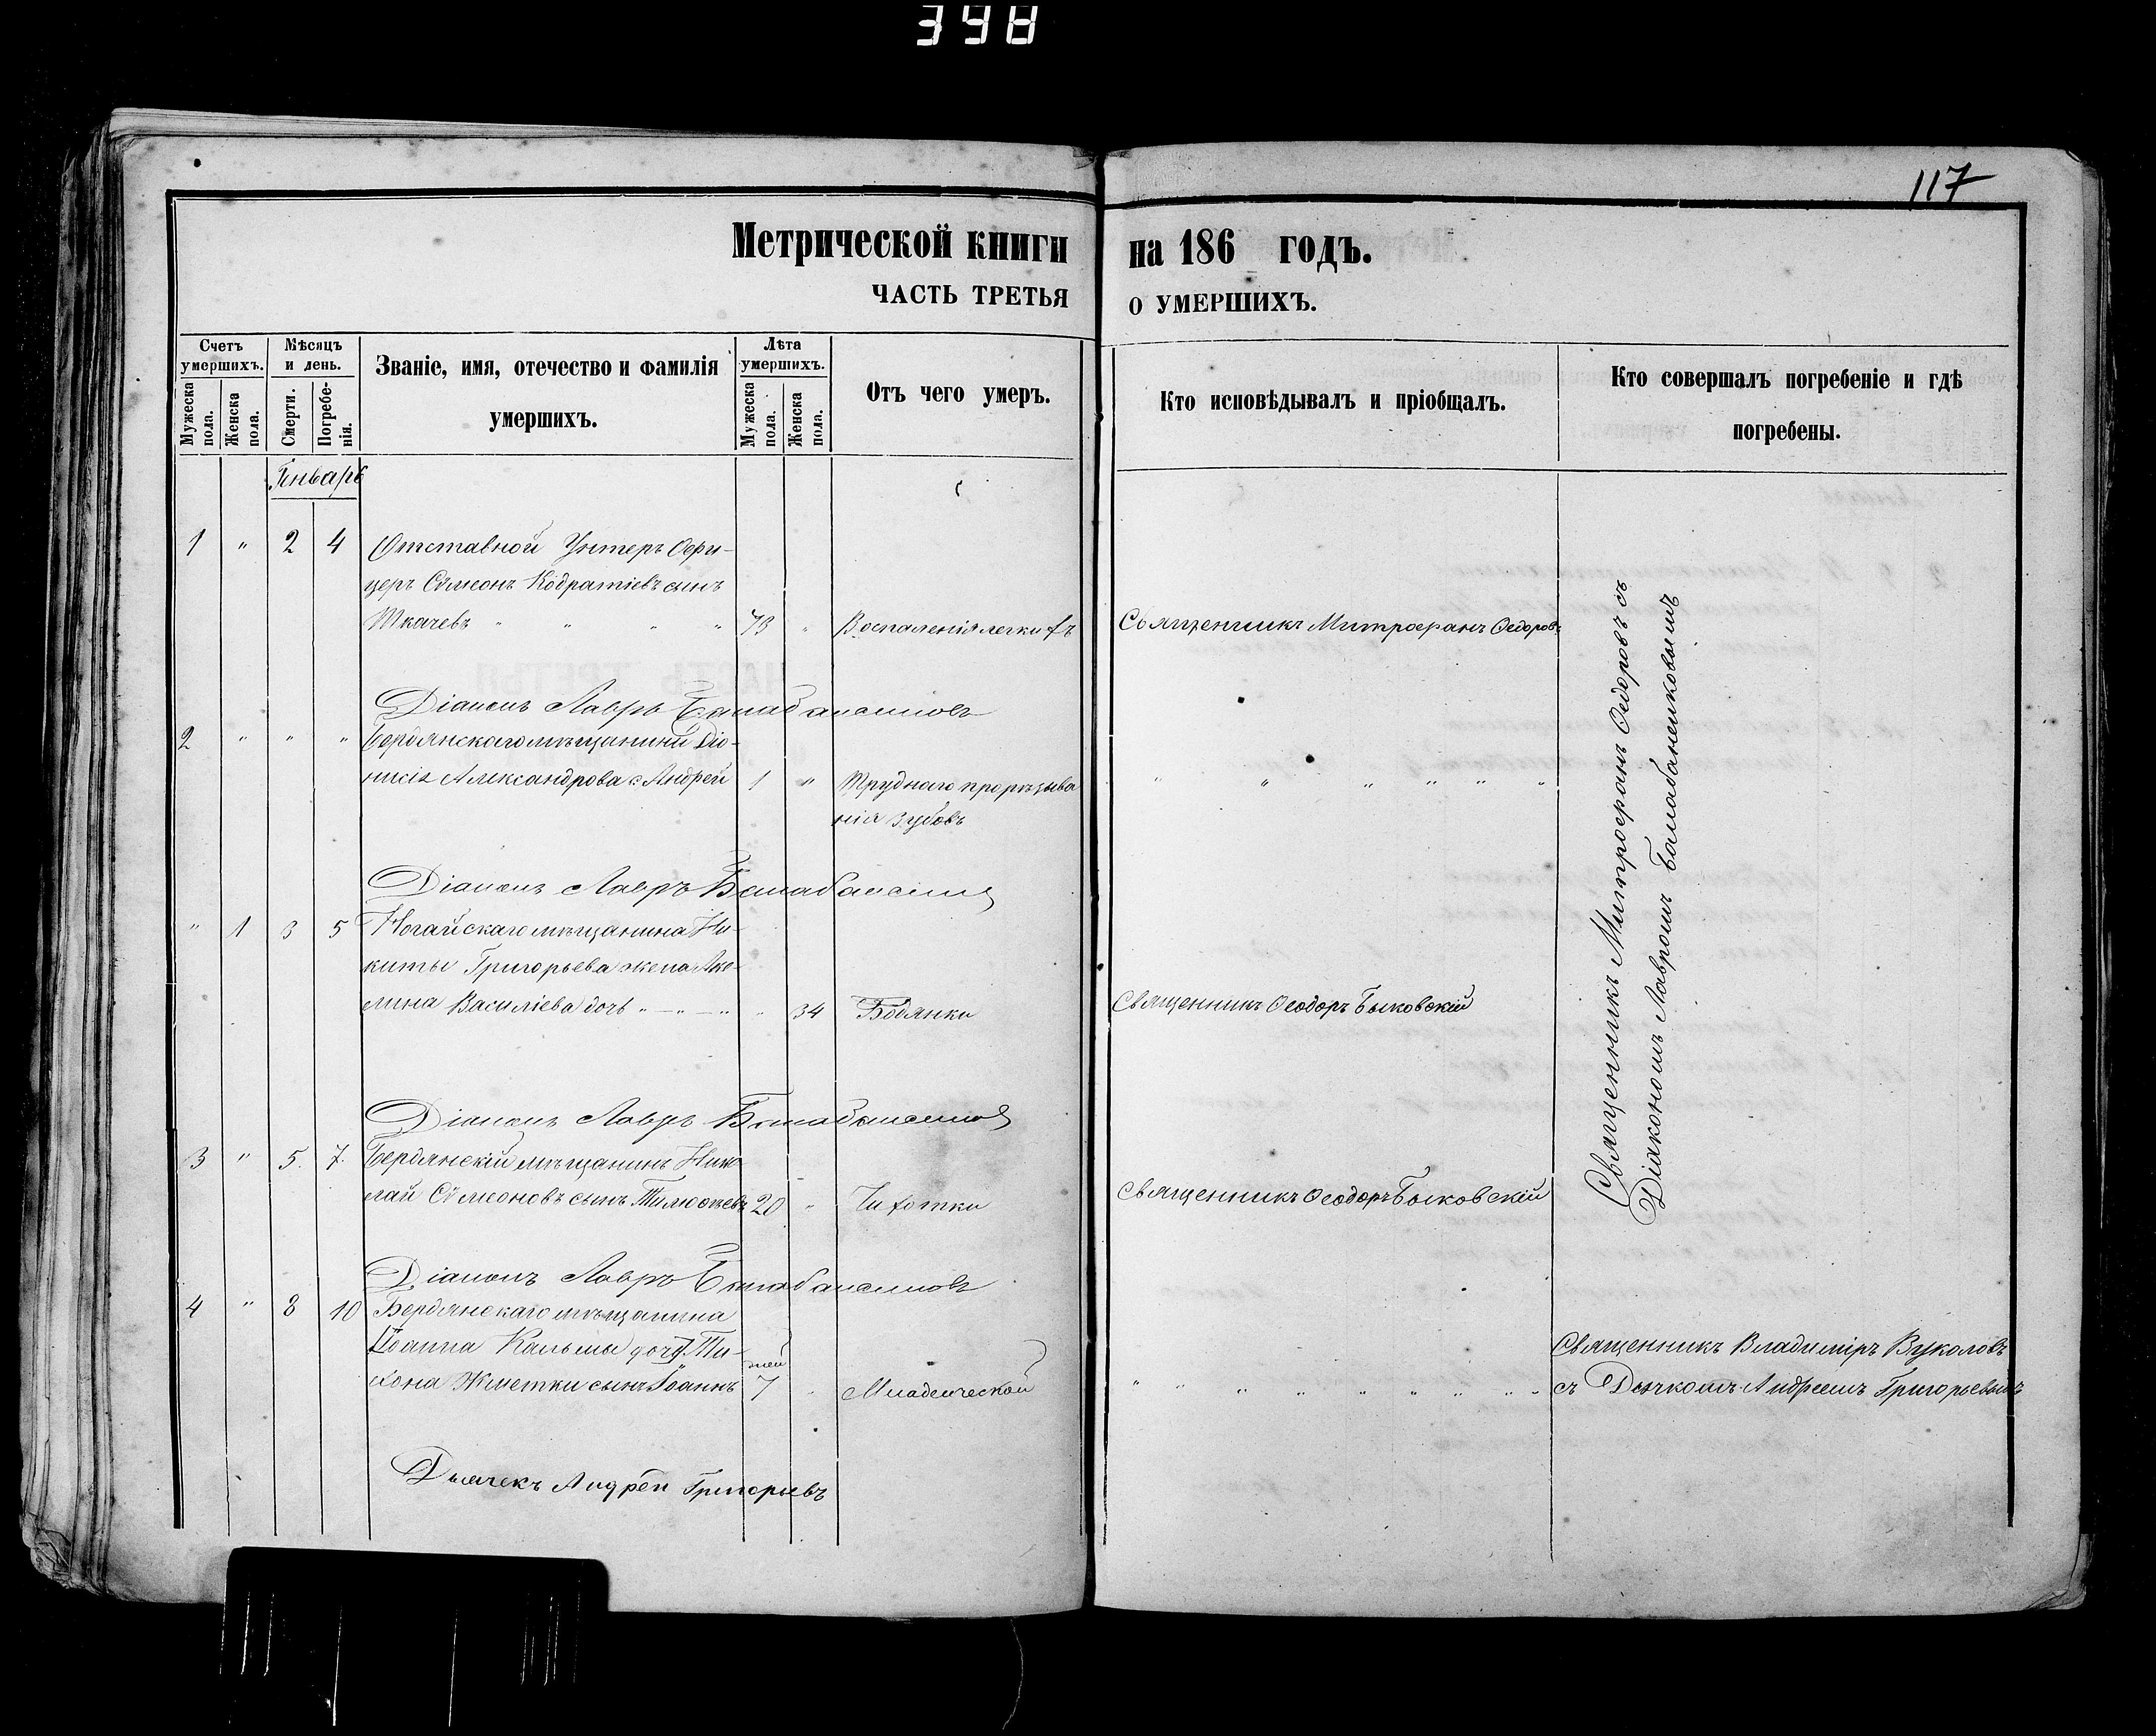 398
117
Метрической книги на 186 годъ.
ЧАСТЬ ТРЕТЬЯ О УМЕРШИХЪ.
Счетъ умершихъ.
Мужеска пола.
Женска пола.
Мѣсяцъ и день.
Смерти.
Погребенія.
Званіе, имя, отечество и фамилія умершихъ.
Лѣта умершихъ.
Мужеска пола.
Женска пола.
Отъ чего умеръ.
Кто исповѣдывалъ и пріобщалъ.
Кто совершалъ погребеніе и гдѣ погребены.
Январь
1 " 2 4 Отставной Унтеръ Офи-
церъ Сѵмеонъ Кодратіевъ сынъ
Ткачевъ " " " " 73 " Воспаленія легкихъ Священникъ Митрофанъ Ѳедоровъ
Діаконъ Лавръ
2 " " " Бердянскаго мѣщанина Діо-
нисія Александрова с. Андрей 1 " Труднаго прорѣзыва " " " " " "
нія зубовъ
Діаконъ Лавръ
" 1 3 5 Ногайскаго мѣщанина Ни-
киты Григорьева жена Аке-
лина Василіева дочь " — " — " " 34 Водянки Священникъ Ѳеодоръ Быковскій
Діаконъ Лавръ
3 " 5. 7. Бердянскій мѣщанинъ Нико-
лай Сѵмеоновъ сынъ 20 " Чихотки Священникъ Ѳеодоръ Быковскій
Діаконъ Лавръ
Священникъ Митрофанъ Ѳедоровъ съ
Діакономъ Лавромъ Балабаненковымъ
4 " 8 10 Бердянскаго мѣщанина
Іоанна Кальмы Ти- Священникъ Владиміръ Вуколовъ
хона сынъ Іоаннъ 7 " Младенческой " " " " " " " " " съ Дьячкомъ Андреемъ Григорьевымъ
Дьячекъ Андрей Григорьевъ